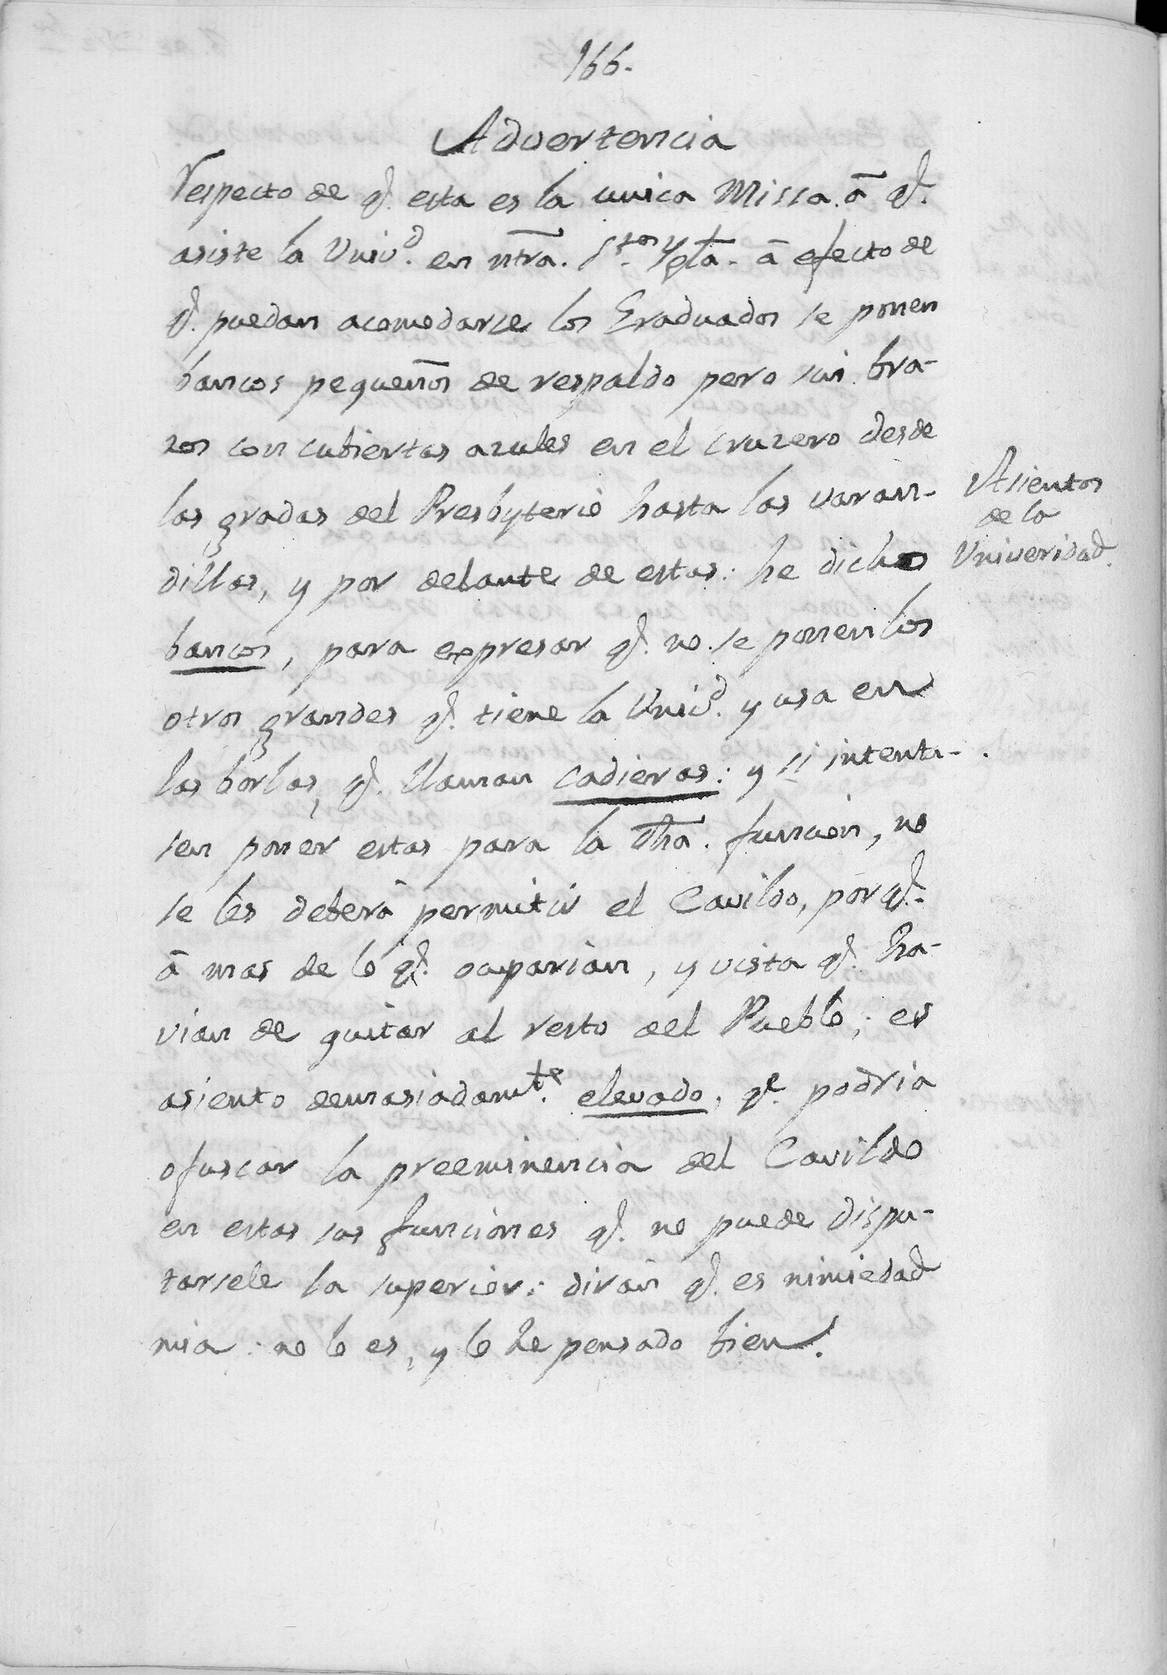 166.
Advertencia
Respecto de q.e esta es la unica Missa. â q.e
asiste la Univ.d en ntra. S.ta Ygla. â efecto de
q.e puedan acomodarse los Graduados se ponen
bancos pequeños de respaldo pero sin bra-
zos con cubiertas azules en el cruzero desde
las gradas del Presbyterio hasta las varan-
dillas, y por delante de estas: he dicho
bancos, para expresar q.e no se ponen los
otros grandes q.e tiene la Univ.d y usa en
las borlas, q.e llaman cadieras: y si intenta-
sen poner estas para la dha. funcion, no
se les deberá permitir el Cavildo, porq.e
â mas de lo q.e ocuparian, y vista q.e ha-
vian de quitar al resto del Pueblo; es
asiento demasiadam.te elevado, q.e podria
ofuscar la preeminencia del Cavildo
en estas sus funciones q.e no puede dispu-
tarsele la superior: dirán q.e es nimiedad
mia: no lo es, y lo he pensado bien.
Asientos
de la
Universidad.